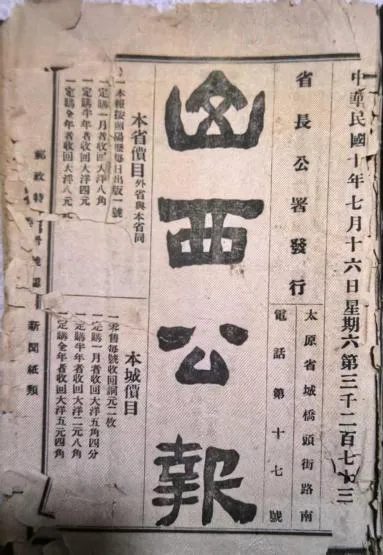 中華民國十年七月十六日星期六第三千二百七十三
省長公署發行
太原省城橋頭街路南
電話第十七號
山西公報
本省價目外省與本省同
一本報按照陽曆每日出版一號
一定購一月者收回大洋八角
一定購半年者收回大洋四元
一定購全年者收回大洋八元
本城價目
一零售每號收回銅元二枚
一定購一月者收回大洋五角四分
一定購半年者收回大洋二元八角
一定購全年者收回大洋五元四角
郵政特
新聞紙類